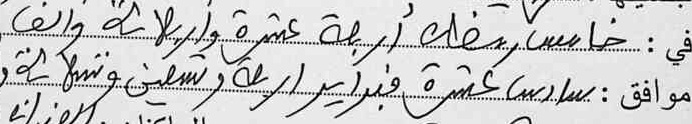 في : خامس رمضان أربعة عشرة وأربعمائة وألف
موافق : سادس عشرة فبراير اربعة وتسعين وتسعمائة و